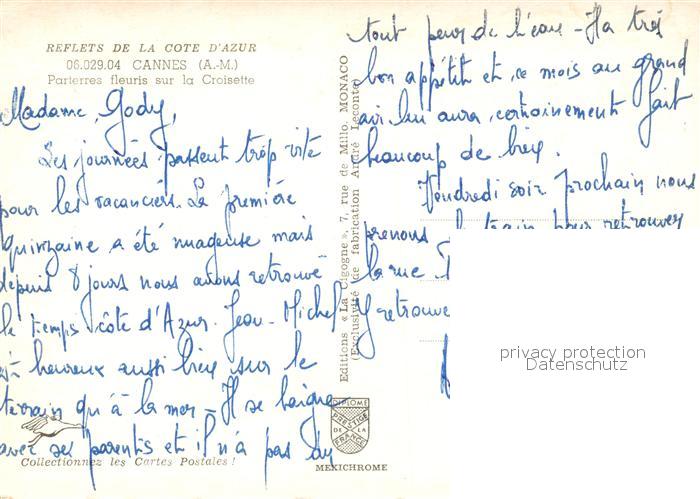 REFLETS DE LA COTE D'AZUR
06.029.04 CANNES (A.-M.)
Parterres fleuris sur la Croisette
Madame Gody,
Les journées passent trop vite
pour les vacanciers. La première
quinzaine a été nuageuse mais
depuis 8 jours nous avons retrouvé
le temps côte d'Azur. Jean-Michel
est heureux aussi bien sur le
terrain qu'à la mer - Il se baigne
avec ses parents et il n'a pas du
Collectionnez les Cartes Postales !
Editions « La Cigogne », 7, rue de Millo, MONACO
(Exclusivité de fabrication André Leconte)
DIPLOME
PRESTIGE
DE LA
FRANCE
MEXICHROME
tout peur de l'eau - Il a très
bon appétit et ce mois au grand
air lui aura certainement fait
beaucoup de bien.
Vendredi soir prochain nous
prenons le train pour retrouver
la rue
y retrouve
privacy protection
Datenschutz